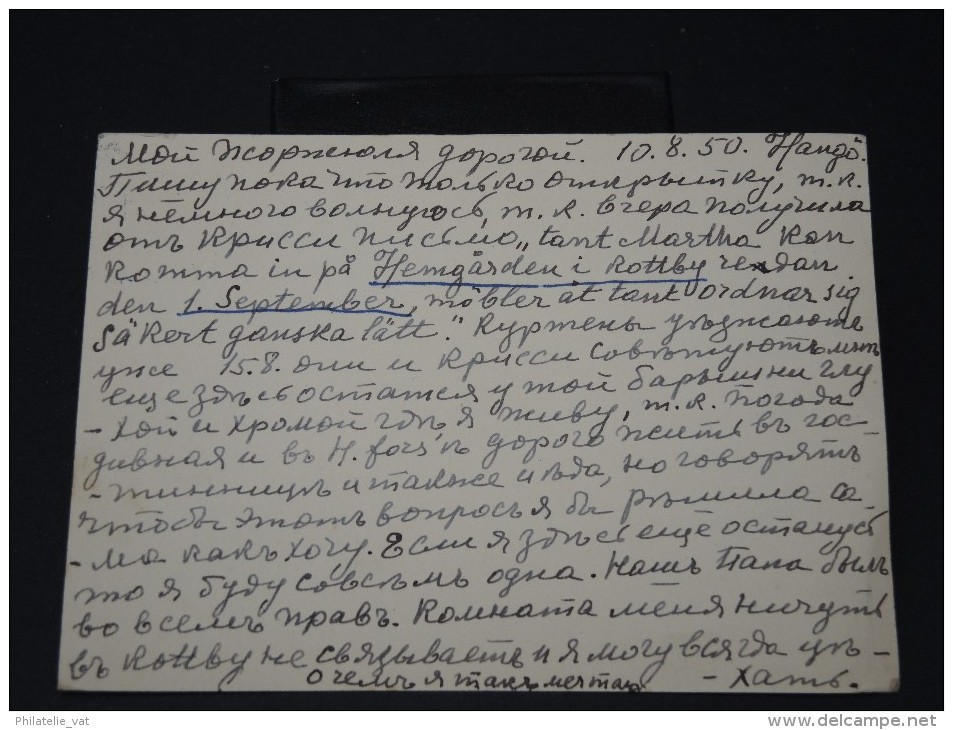 Мой Жоржюля дорогой. 10.8.50. Hangö.
Пишу пока что только открытку, т.к.
я немного волнуюсь, т.к. вчера получила
отъ Крисси письмо „tant Martha kan
komma in på Hemgården i Kottby redan
den 1. September, möbler at tant ordnar sig
säkert ganska lätt". Куржены уѣзжаютъ
уже 15.8. они и Крисси совѣтуютъ мнѣ
еще здѣсь остаться у той барышни глу
- хой и хромой гдѣ я живу, т.к. погода
дивная и въ H.fors'ѣ дорого жить въ гос-
- тинницѣ и также и ѣда, но говорятъ
чтобы этотъ вопросъ я бы рѣшила са
- ма какъ хочу. Если я здѣсь еще останусь
то я буду совсѣмъ одна. Нашъ Папа былъ
во всемъ правъ. Комната меня ничуть
въ Kottby не связываетъ и я могу всягда уѣ -
о чемъ я такъ мечтаю - хать.
Philatelie_vat
www.delcampe.net